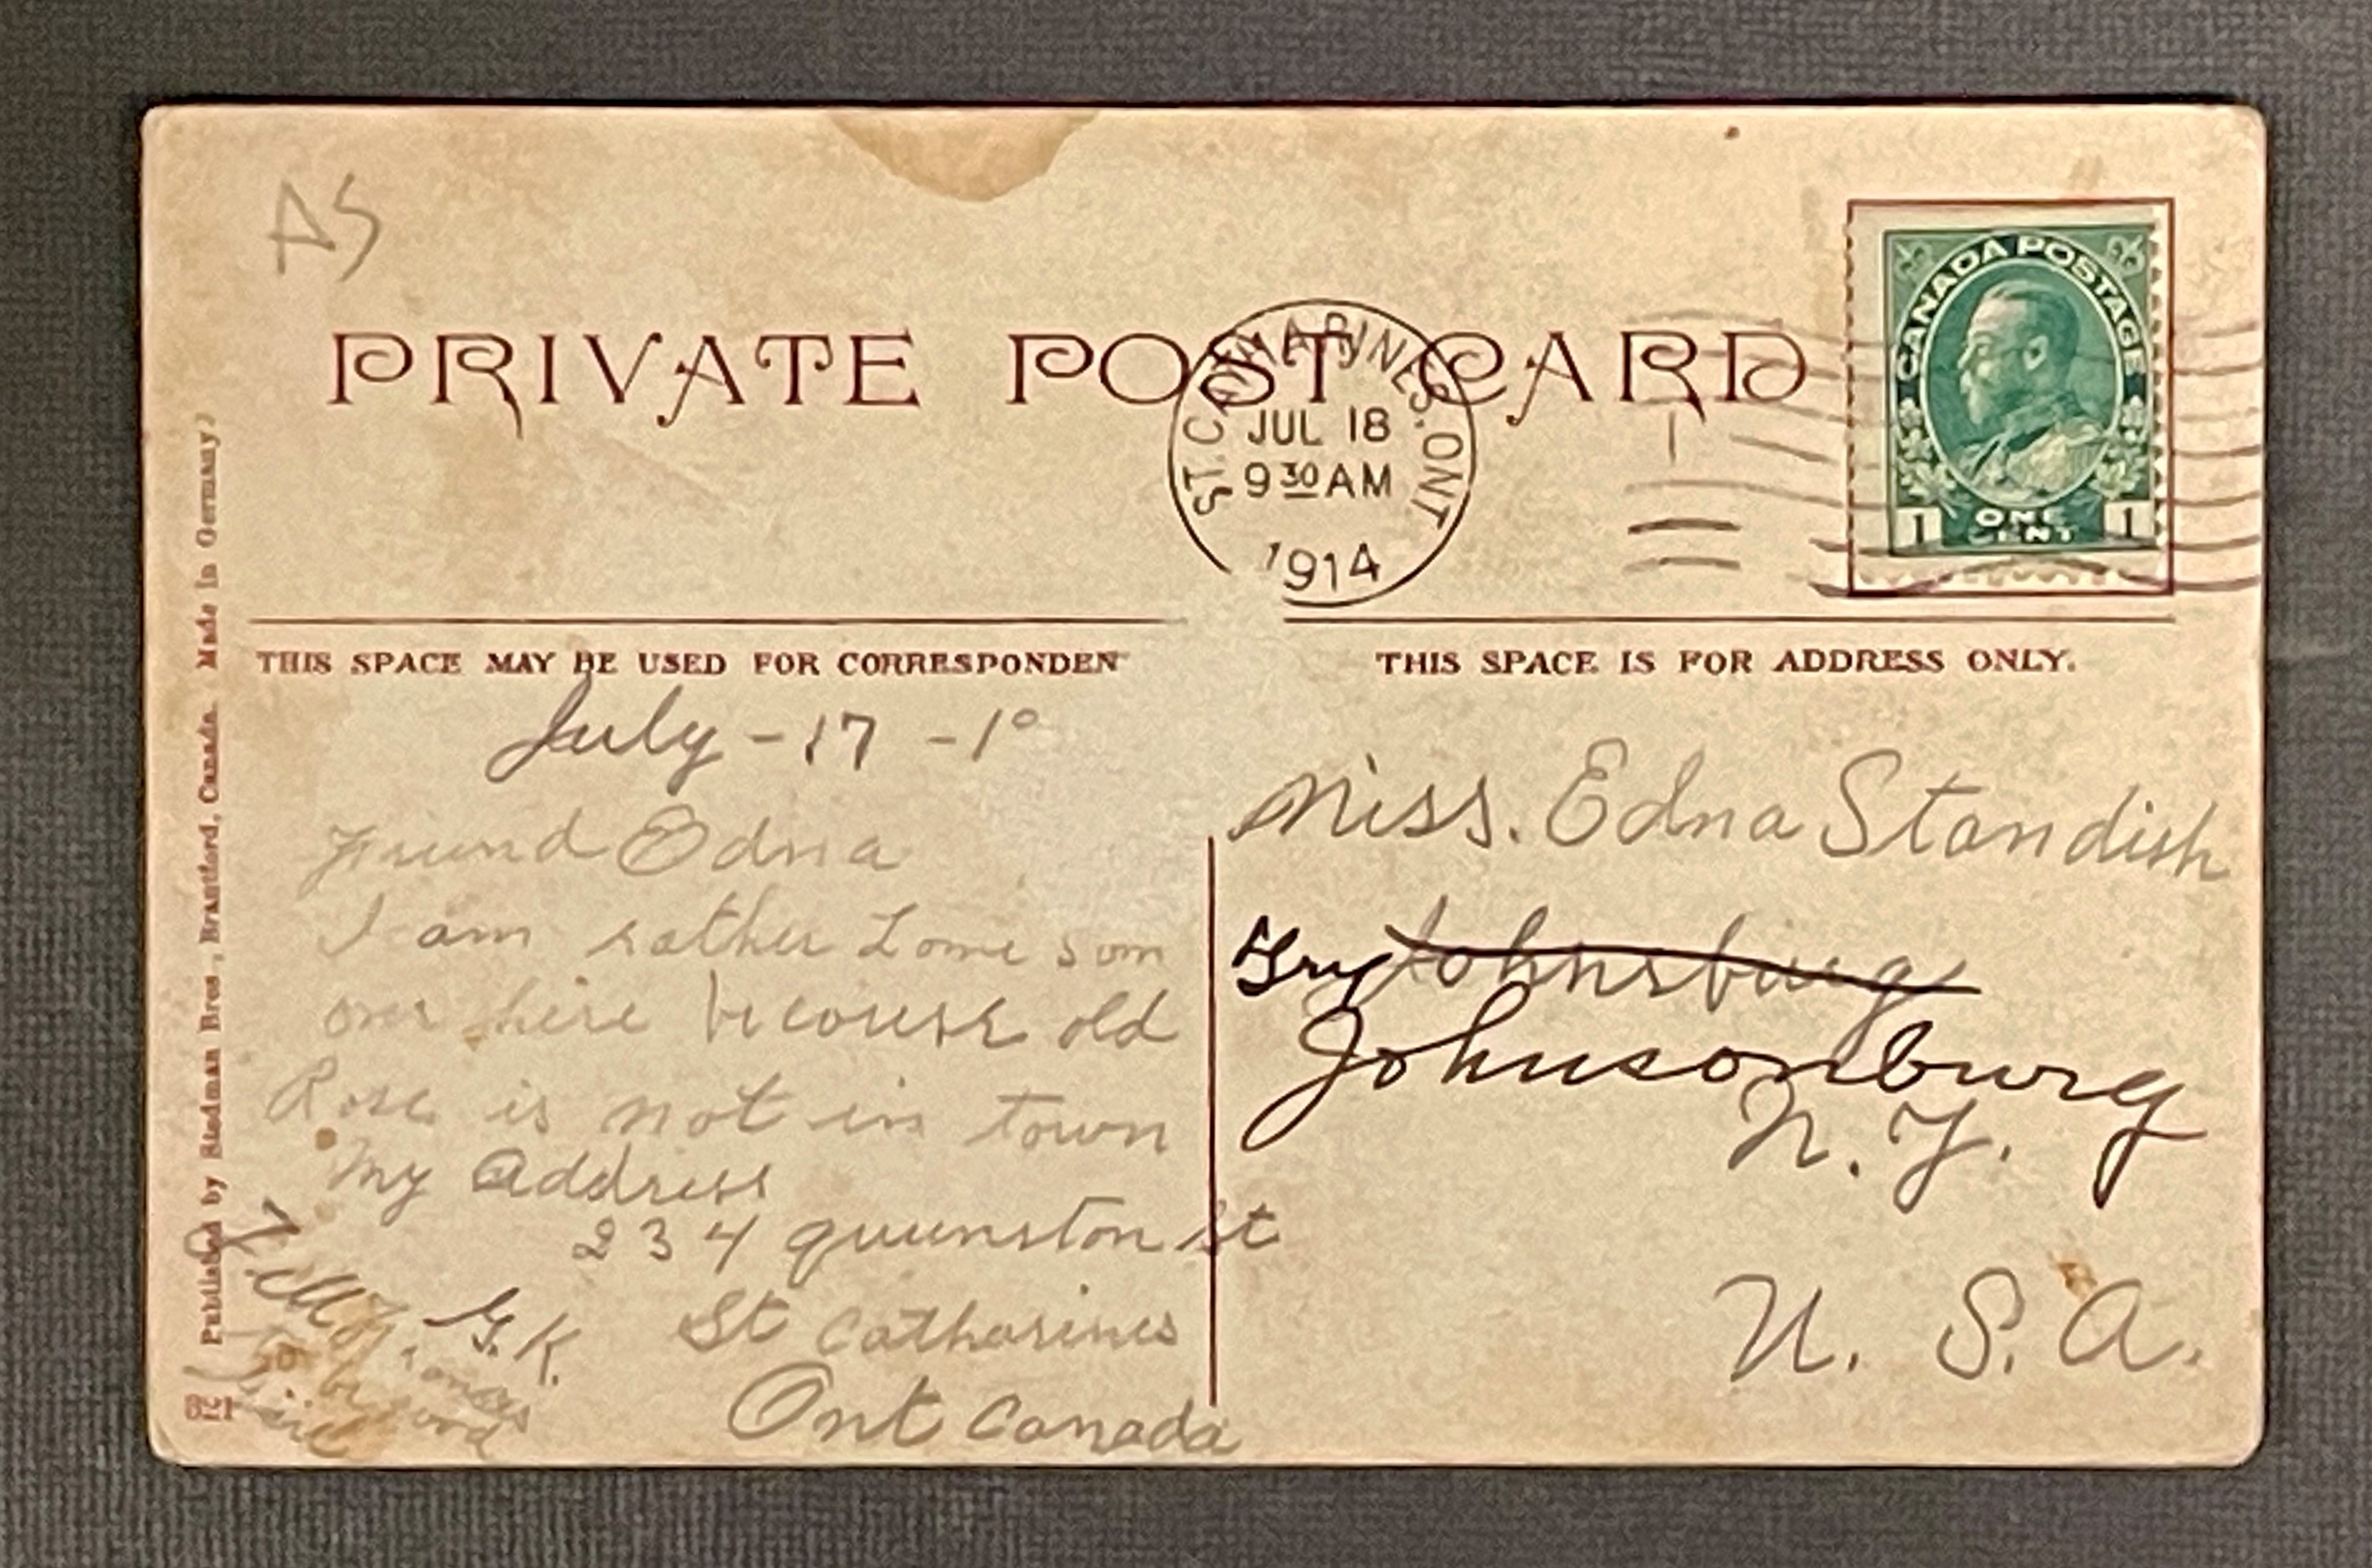 AS
PRIVATE POST CARD
ST. CATHARINES, ONT
JUL 18
9 30 AM
1914
CANADA POSTAGE
1 ONE CENT 1
THIS SPACE MAY BE USED FOR CORRESPONDEN
THIS SPACE IS FOR ADDRESS ONLY.
July - 17 - 1
Friend Edna
I am rather Lome som
over here becouse old
Rose is not in town
My Address
234 queenston st
St Catharines
Ont Canada
G.K.
to be good
Miss. Edna Standish
Try Johnsburg
Johnsonburg
N. Y.
U. S. A.
Published by Stedman Bros., Brantford, Canada. Made in Germany